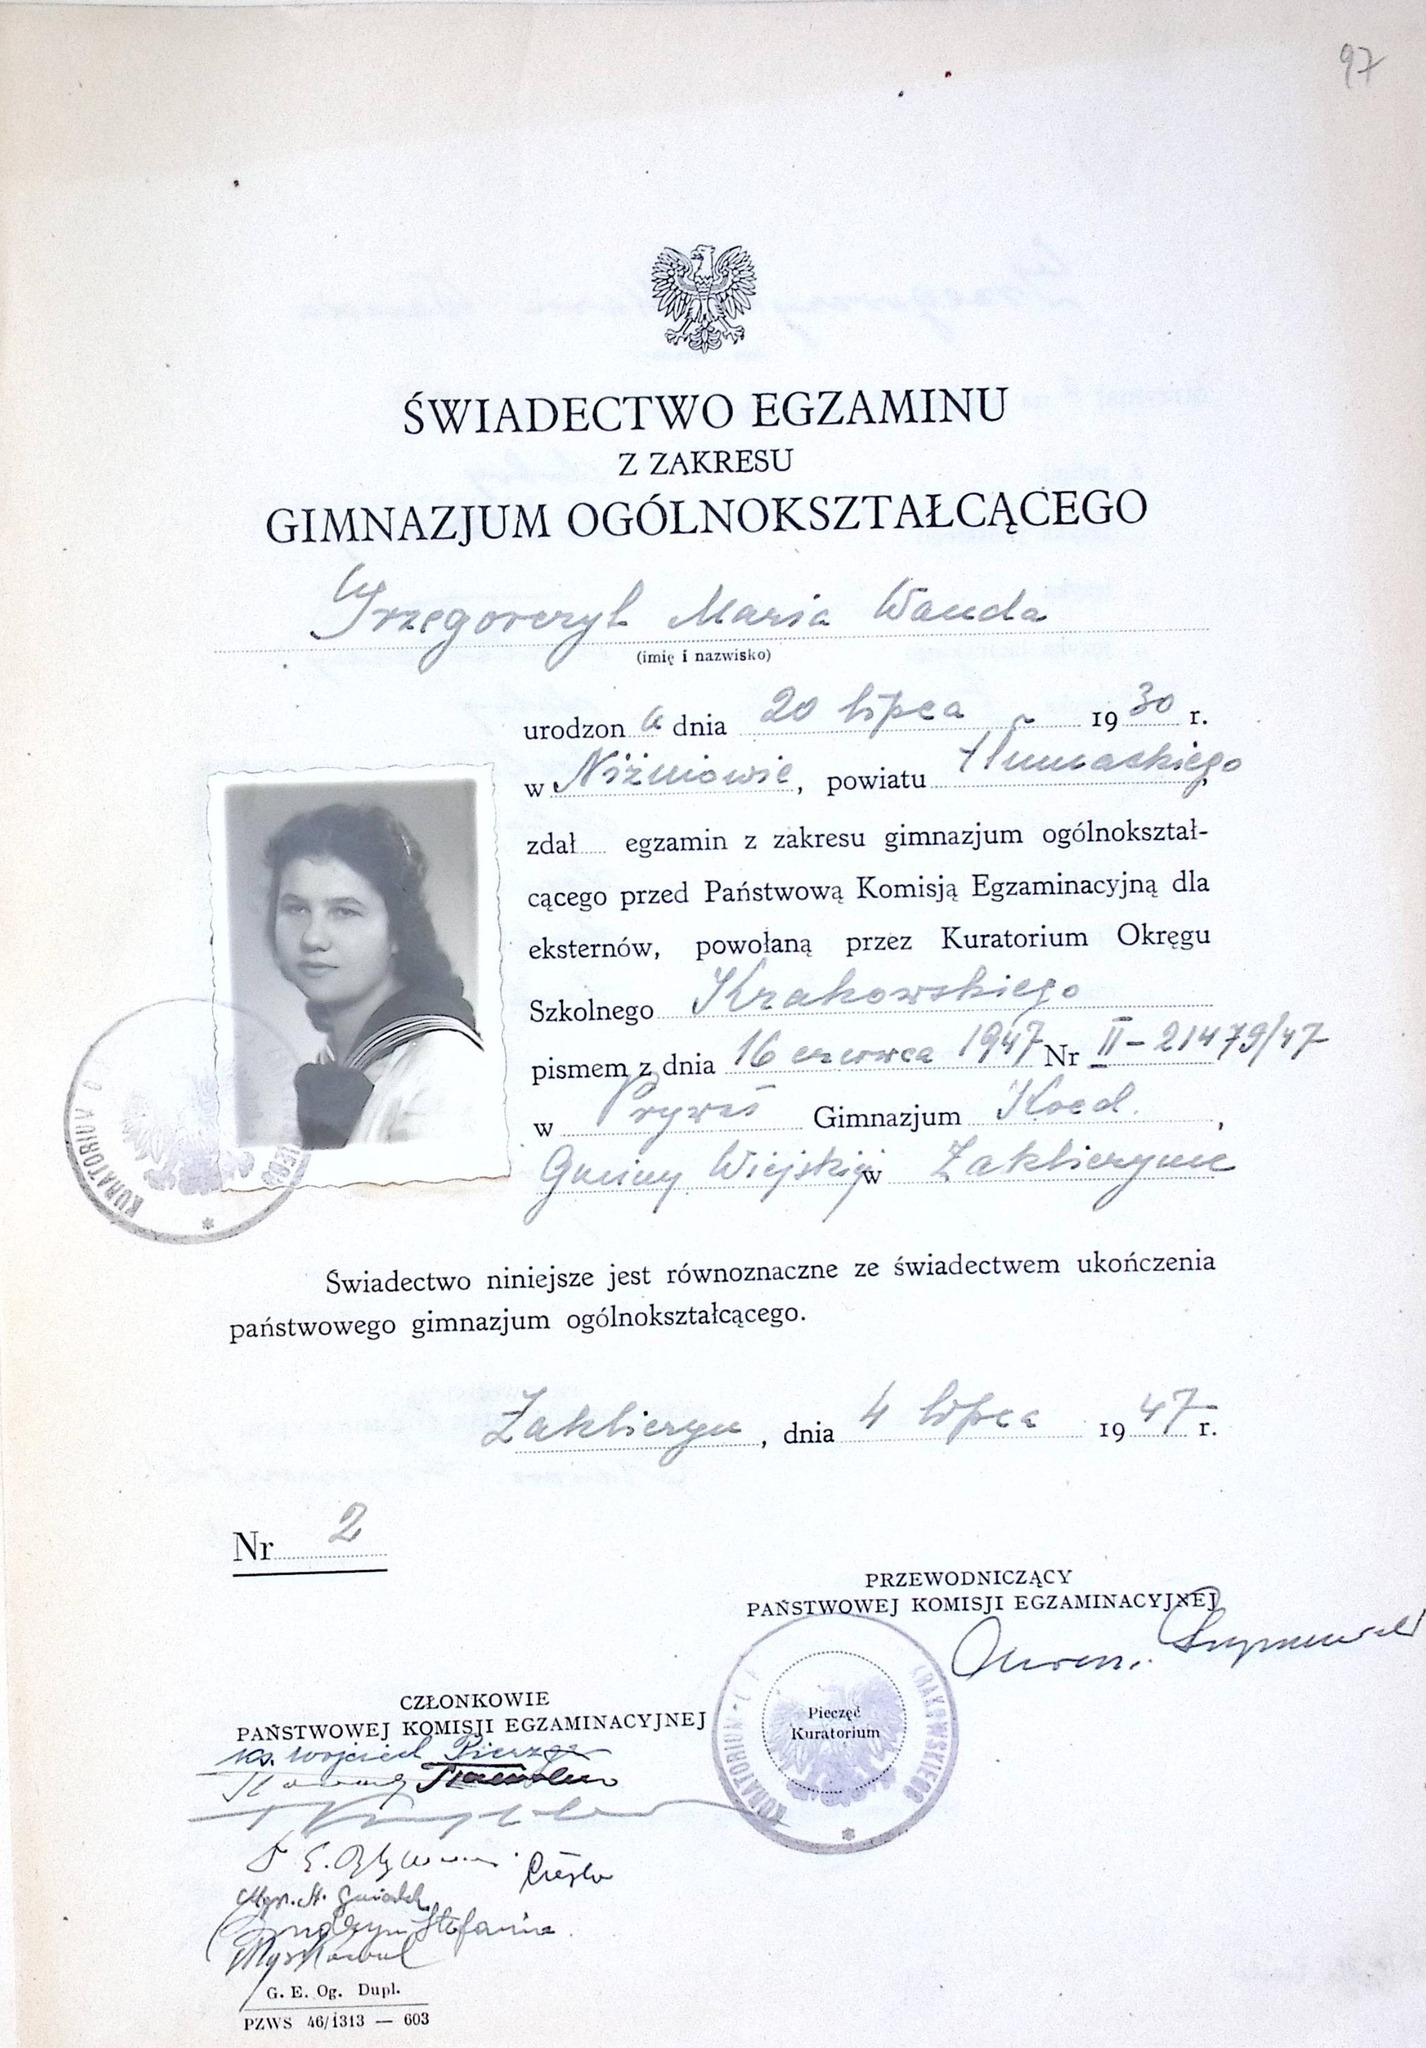 97
ŚWIADECTWO EGZAMINU
Z ZAKRESU
GIMNAZJUM OGÓLNOKSZTAŁCĄCEGO
Grzegorczyk Maria Wanda
(imię i nazwisko)
urodzon a dnia 20 lipca 1930 r.
w Niżniowie, powiatu tłumackiego,
zdał egzamin z zakresu gimnazjum ogólnokształ-
cącego przed Państwową Komisją Egzaminacyjną dla
eksternów, powołaną przez Kuratorium Okręgu
Szkolnego Krakowskiego
pismem z dnia 16 czerwca 1947 Nr II-21479/47
w Gimnazjum Koed.,
Gminy Wiejskiej w Zakliczynie
Świadectwo niniejsze jest równoznaczne ze świadectwem ukończenia
państwowego gimnazjum ogólnokształcącego.
Zakliczyn, dnia 4 lipca 1947 r.
Nr 2
PRZEWODNICZĄCY
PAŃSTWOWEJ KOMISJI EGZAMINACYJNEJ
Pieczęć
Kuratorium
KURATORIUM KRAKOWSKIEGO
CZŁONKOWIE
PAŃSTWOWEJ KOMISJI EGZAMINACYJNEJ
Ks. Wojciech
Stefania
G. E. Og. Dupl.
PZWS 46/1313 — 603
KURATORIUM O